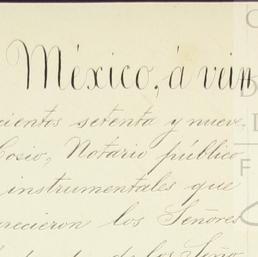 México, á vein
cientos setenta y nueve
Cosio, Notario público
instrumentales que
arecieron los Señores
de los Seño